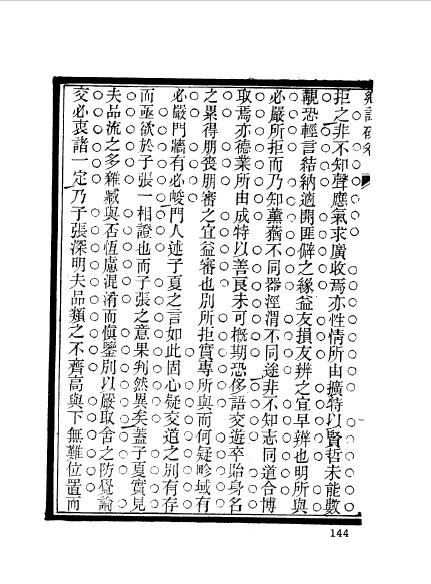 拒之非不知聲應氣求廣收焉亦性情所由擴特以賢哲未能數
覯恐輕言結納適開匪僻之緣益友損友辨之宜早辨也明所與
必嚴所拒而乃知薰蕕不同器涇渭不同途非不知志同道合博
取焉亦德業所由成特以善良未可概期恐侈語交遊卒貽身名
之累得朋喪朋審之宜益審也別所拒實專所與而何疑畛域有
必嚴門牆有必峻門人述子夏之言如此固心疑交道之別有存
而亟欲於子張一相證也而子張之意果判然異矣蓋子夏實見
夫品流之多雜臧與否恆慮混淆而慎鑒別以嚴取舍之防覺論
交必衷諸一定乃子張深明夫品類之不齊高與下無難位置而
144